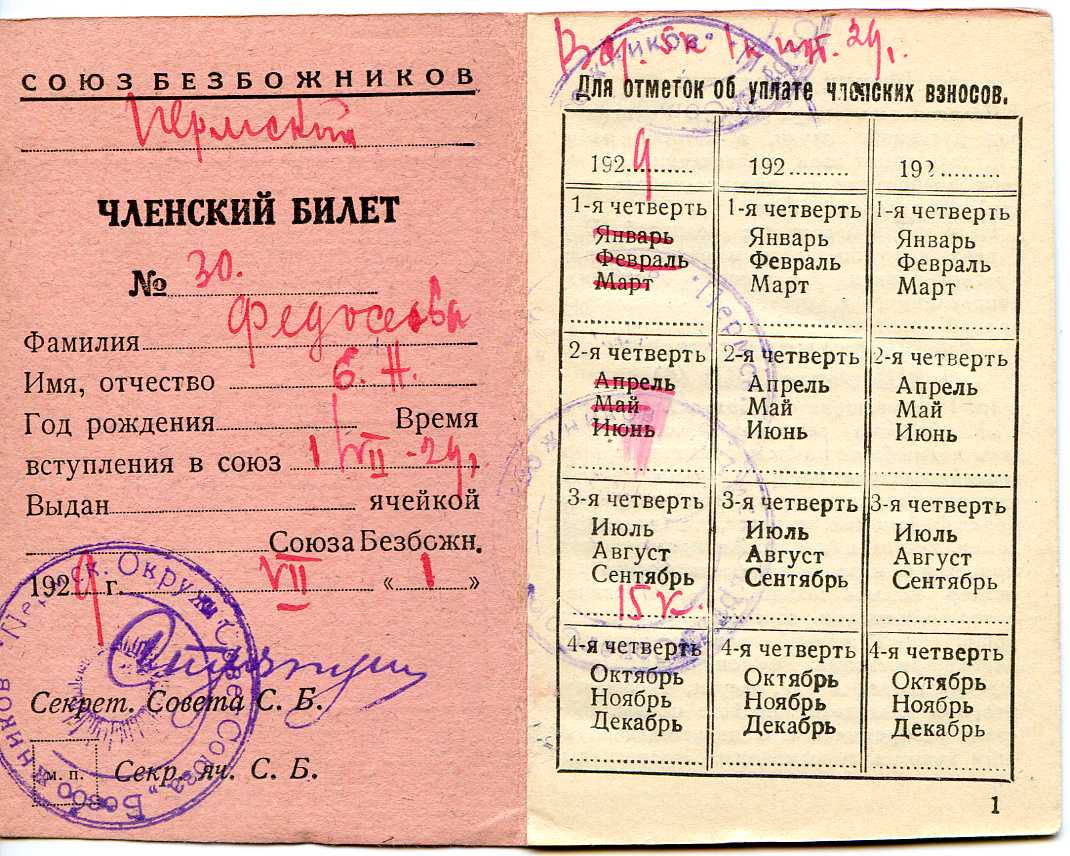 СОЮЗ БЕЗБОЖНИКОВ
Пермский
ЧЛЕНСКИЙ БИЛЕТ
№ 30.
Фамилия Федосеева
Имя, отчество Е. Н.
Год рождения Время
вступления в союз 1 VII - 29 г.
Выдан ячейкой
Союза Безбожн.
1929 г. VII « 1 »
Секрет. Совета С. Б.
м. п. Секр. яч. С. Б.
29 г.
Для отметок об уплате членских взносов.
1929 192 192
1-я четверть 1-я четверть 1-я четверть
Январь Январь Январь
Февраль Февраль Февраль
Март Март Март
2-я четверть 2-я четверть 2-я четверть
Апрель Апрель Апрель
Май Май Май
Июнь Июнь Июнь
3-я четверть 3-я четверть 3-я четверть
Июль Июль Июль
Август Август Август
Сентябрь Сентябрь Сентябрь
15 к.
4-я четверть 4-я четверть 4-я четверть
Октябрь Октябрь Октябрь
Ноябрь Ноябрь Ноябрь
Декабрь Декабрь Декабрь
1